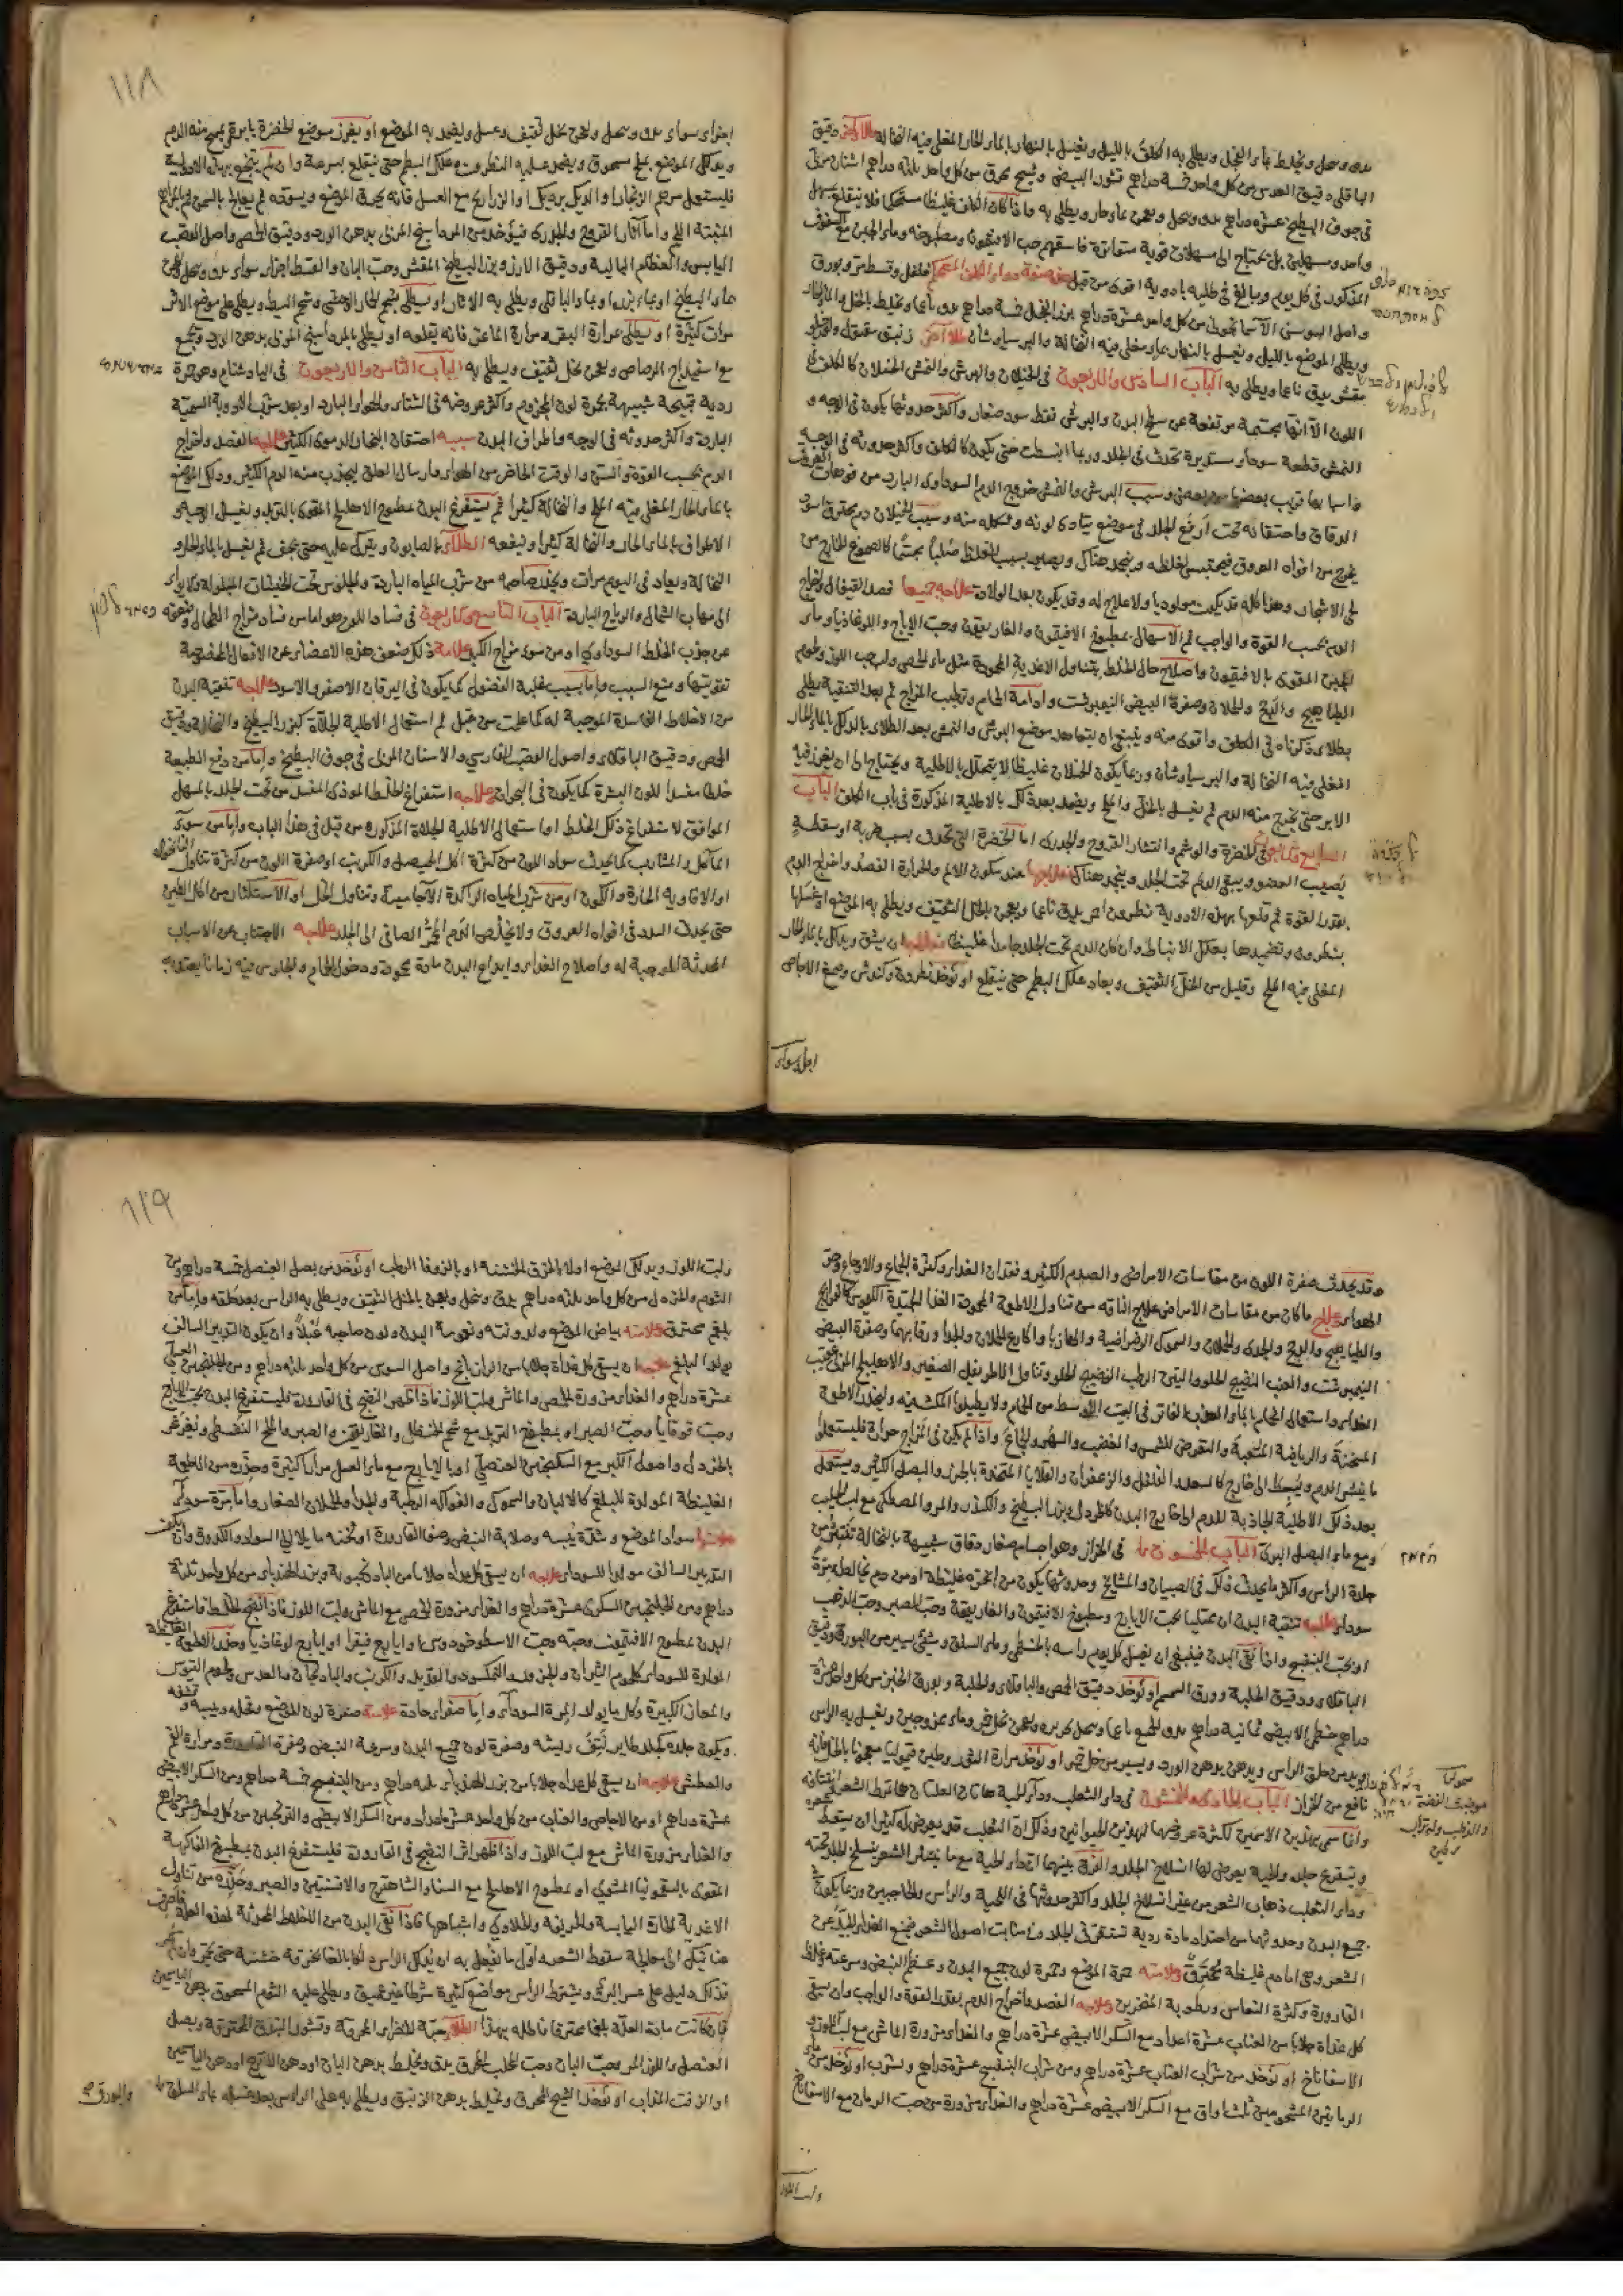 يدق وينخل ويخلط بماء الفجل ويطلى به الكلف بالليل ويغسل بالنهار بالماء الحار المغلى فيه النخالة طلاء اخر دقيق
الباقلى ودقيق العدس من كل واحد خمسة دراهم قشور البيض وشيح محرق من كل واحد ثلثة دراهم اشنان مربى
في جوف البطيخ عشرة دراهم يدق وينخل ويعجن بماء حار ويطلى به واذا كان الكلف غليظا مستحكما فلا ينقلع بمسهل
واحد ومسهلين بل يحتاج الى مسهلات قوية متواترة فاسقهم حب الافتيمون ومطبوخه وماء الجبن مع السفوف
المذكور في كل يوم وبالغ في طليه بادوية اقوى من قبل صفة دواء الكلف المستحكم فلفل وقسط مر وبورق
واصل السوسن الاسمانجوني من كل واحد عشرة دراهم بزر الفجل خمسة دراهم يدق ويخلط بالخل
ويطلى الموضع بالليل ويغسل بالنهار بماء مغلى فيه النخالة والبرسياوشان طلاء اخر زيبق مقتول
مقشر يدق ناعما ويطلى به الباب السادس والاربعون في الخيلان والبرش والنمش الخيلان كالكلف في
اللون الا انها مجتمعة مرتفعة عن سطح البدن والبرش نقط سود صغار واكثر حدوثها يكون في الوجه و
النمش قطعة سوداء مستديرة تحدث في الجلد وربما انبسطت حتى يكون كالكلف واكثر حدوثه في الوجه
وسبب البرش والنمش خروج الدم السوداوى البارد من فوهات العروق
الدقاق واحتقانه تحت ارفع الجلد في موضع يتادى لونه وشكله منه وسبب الخيلان دم محترق اسود
يخرج من افواه العروق فيحتبس لغلظه ويجمد هناك ويصير بسبب الغلظ صلبا كالصموغ الخارج من
لحى الاشجار وهذا كله قد يكون مولوديا ولا علاج له وقد يكون بعد الولادة علاجه جميعا فصد القيفال واخراج
الدم بحسب القوة والواجب ثم الاسهال بمطبوخ الافتيمون والغاريقون وحب الايارج واللوغاذيا وماء
الجبن المقوى بالافتيمون واصلاح حال الخلط بتناول الاغذية المحمودة مثل ماء الحمص ولب حب اللوز ولحوم
الطياهيج والبج والحملان وصفرة البيض النيمبرشت وادامة الحمام وترطيب المزاج ثم بعد التنقية يطلى
بطلاء ذكرناه في الكلف واقوى منه وينبغي ان يتعاهد موضع البرش والنمش بعد الطلاء بالدلك بالماء الحار
المغلى فيه النخالة والبرسياوشان وربما يكون الخيلان غليظا لا يتحلل بالاطلية ويحتاج الى ان يغرز فيه
الابر حتى يخرج منه الدم ثم يغسل بالخل والملح ويضمد بعد ذلك بالاطلية المذكورة في باب الكلف الباب
السابع والاربعون في الخضرة والوشم وانتشار القروح والجدرى اما الخضرة التي تحدث بسبب ضربة او سقطة
يصيب العضو ويبقى الدم تحت الجلد ويجمد هناك فعلاجها عند سكون الالم والحرارة الفصد واخراج الدم
بقدر القوة ثم قلعها بهذه الادوية نطرون احمر يدق ناعما ويعجن بالخل الثقيف ويطلى به الموضع او غسلها
بنطرون وتضميدها بعلك الانباط وان كان الدم تحت الجلد جامدا غليظا فعلاجه ان يشق ويدلك بالماء الحار
المغلى فيه الملح وقليل من الخل الثقيف ويعاد علك البطم حتى ينقلع او يؤخذ نطرون وكندش وصمغ الاجاص
اجزاء سواء
١١٨
اجزاء سواء يدق وينخل ويعجن بخل ثقيف وعسل ويضمد به الموضع او يغرز موضع الخضرة بابر حتى يخرج منه الدم
ويدلك الموضع بملح مسحوق ويضمد عليه النطرون وعلك البطم حتى ينقلع بسرعة وان لم ينجع بهذه الادوية
فليستعمل مرهم الزنجار او الديك برديك او الذراريح مع العسل فانه يحرق الموضع ويسوده ثم يعالج بالسمن
المنبتة اللحم واما اثار القروح والجدرى فيؤخذ من المرداسنج المربى بدهن الورد ودقيق الحمص واصل القصب
اليابس والعظام البالية ودقيق الارز وبزر البطيخ المقشر وحب البان والقسط اجزاء سواء يدق وينخل ويعجن
بماء البطيخ او بماء بزره او بماء الباقلى ويطلى به الاثار او يطلى بشحم الحمار الوحشى وشحم البط ويطلى على موضع الاثر
مرات كثيرة او يطلى بمرارة البقر ومرارة الماعز فانه يقلعه او يطلى بالمرداسنج المربى بدهن الورد ويجمع
مع اسفيداج الرصاص ويعجن بخل ثقيف ويطلى به الباب الثامن والاربعون في الباذشنام وهو حمرة
ردية قبيحة شبيهة بحمرة لون المجذوم واكثر عروضه في الشتاء والهواء البارد او بعد شرب الادوية السمية
الباردة واكثر حدوثه في الوجه واطراف البدن سببه احتقان البخار الدموى الكثير علاجه الفصد واخراج
الدم بحسب القوة والسن والوقت الحاضر من الهواء وارسال العلق ليجذب منه الدم الكثير ودلك الموضع
بالماء الحار المغلى فيه الملح والنخالة كثيرا ثم يستفرغ البدن بمطبوخ الاهليلج المقوى بالتربد ويغسل الوجه و
الاطراف بالماء الحار والنخالة كثيرا وينفعه الطلاء بالصابون ويترك عليه حتى يجف ثم يغسل بالماء الحار و
النخالة ويعاد في اليوم مرات ويحذر صاحبه من شرب المياه الباردة والجلوس تحت الخيشات المبلولة
الى مهاب الشمال والرياح الباردة الباب التاسع والاربعون في فساد اللون هو اما من فساد مزاج الطحال وضعفه
عن جذب الخلط السوداوى او من سوء مزاج الكبد علامة ذلك ضعف هذه الاعضاء عن الافعال المخصوصة
تقويتها ومنع السبب واما بسبب غلبة الفضول كما يكون في اليرقان الاصفر والاسود علاجه تنقية البدن
من الاخلاط الفاسدة الموجبة له كما علمت من قبل ثم استعمال الاطلية الجلاءة كبزر البطيخ والنخالة ودقيق
الحمص ودقيق الباقلاء واصول القصب الفارسي والاشنان المربى في جوف البطيخ واما من دفع الطبيعة
خلطا مفسدا للون البشرة كما يكون في البحران علاجه استفراغ الخلط الموذى المفسد من تحت الجلد بالمسهل
الموافق لاستفراغ ذلك الخلط او استعمال الاطلية الجلاءة المذكورة من قبل في هذا الباب واما من سوء
المأكل والمشارب كما يحدث سواد اللون من كثرة اكل المصل والكرنب او صفرة اللون من كثرة تناول النانخواه
او الافاويه الحارة والكمون او من شرب المياه الراكدة الاجامية وتناول الخل او الاستكثار من اكل الطين
حتى يحدث السدد في افواه العروق ولا يخلص الدم الصافى الى الجلد علاجه الاجتناب عن الاسباب
المحدثة الموجبة له واصلاح الغذاء وايداع البدن مادة محمودة ودخول الحمام والجلوس فيه زمانا
وقد يحدث صفرة اللون من مقاسات الامراض والصوم الكثير وفقدان الغذاء وكثرة الجماع والاوجاع وحر
الهواء علاج ما كان من مقاسات الامراض علاج الناقه من تناول الاطعمة المحمودة الغذاء الجيدة الكيموس كالفراريج
والطياهيج والبج والجدى والحملان والسموك الرضراضية والهازبا واكارع الحملان والجدا ورقابها وصفرة البيض
النيمبرشت والعنب النضيج الحلو والتين الرطب النضيج الحلو وتناول الاطريفل الصغير والاهليلج المربى عقيب
الغذاء واستعمال الحمام بالماء العذب الفاتر في البيت الاوسط من الحمام ولا يطيلوا المكث فيه وليحذر الاطعمة
المسخنة والرياضة المتعبة والتعرض للشمس والغضب والسهر والجماع واذا لم يكن في المزاج حرارة فليستعملوا
ما ينشر الدم ويبسطه الى خارج كالسعد والفلفل والزعفران والقلايا المتخذة بالجزر والبصل الكثير ويستعمل
بعد ذلك الاطلية الجاذبة للدم الى خارج البدن كالخردل وبزر البطيخ والكندر والمر والمصطكى مع لبن الحليب
ومع ماء البصل البرى الباب الخمسون في الحزاز وهو اجسام صغار دقاق شبيهة بالنخالة تنتثر من
جلدة الراس واكثر ما يحدث ذلك في الصبيان والمشايخ وحدوثها يكون من ابخرة غليظة او من دم يخالطه مرة
سوداء علاجه تنقية البدن ان كان ممتليا بحب الايارج ومطبوخ الافتيمون والغاريقون وحب الصبر وحب الذهب
او بحب البنفسج واذا نقى البدن فينبغى ان يغسل كل يوم راسه بالخطمى وماء السلق وشئ يسير من البورق ودقيق
الباقلاء ودقيق الحلبة وورق السمسم او يؤخذ دقيق الحمص والباقلاء والحلبة وبورق الخبز من كل واحد عشرة
دراهم خطمى الابيض ثمانية دراهم يدق الجميع ناعما وينخل بحريرة ويعجن بخل خمر وماء ممزوجين ويغسل به الراس
ويدهن بدهن الورد ويسير من خل خمر او يؤخذ مرارة الثور وطين قيموليا معجونا بالخل فانه
نافع من الحزاز الباب الحادى والخمسون في داء الثعلب وداء الحية هاتان العلتان هما تمرط الشعر
وانما سمى بهذين الاسمين لكثرة عروضها لهذين الحيوانين وذلك ان الثعلب قد يعرض له كثيرا ان يسقط شعره
ويتقرع جلده والحية يعرض لها انسلاخ الجلد والفرق بينهما ان داء الحية مع ما يتناثر الشعر ينسلخ الجلد تحته
وداء الثعلب ذهاب الشعر من غير انسلاخ الجلد واكثر حدوثها في اللحية والراس والحاجبين وربما يكون في
جميع البدن وحدوثها من احتداد مادة ردية تستقر في الجلد وفي منابت اصول الشعر فيمنع الغذاء الجيد عن
الشعر وهى اما دم غليظة محترق علامته حمرة الموضع وحمرة لون جميع البدن وعظم النبض وسرعته وغلظ
القارورة وكثرة النعاس ورطوبة المنخرين علاجه الفصد واخراج الدم بقدر القوة والواجب وان يسقى
كل غداة جلابا من العناب عشرة اعداد مع السكر الابيض عشرة دراهم والغذاء مزورة الماش مع لب اللوز و
الاسفاناخ او يؤخذ من شراب العناب عشرة دراهم ومن شراب البنفسج عشرة دراهم ويشرب او يؤخذ من ماء
الرمانين المشحومين ثلث اواق مع السكر الابيض عشرة دراهم والغذاء مزورة من حب الرمان مع الاسفاناخ
ولب اللوز
١١٩
ولب اللوز ويدلك الموضع اولا بالخرق الخشنة او بالزوفا الرطب او يؤخذ من بصل العنصل خمسة دراهم ومن
الثوم والخردل من كل واحد ثلثة دراهم يدق وينخل ويعجن بالخل الثقيف ويطلى به الراس بعد حلقه واما من
بلغم محترق علامته بياض الموضع ولدونته ونعومة البدن ولون صاحبه وان يكون التدبير السالف
مولدا للبلغم علاجه ان يسقى كل غداة جلابا من الرازيانج واصل السوس من كل واحد ثلثة دراهم ومن الجلنجبين العسلى
عشرة دراهم والغذاء مزورة الحمص والماش ولب اللوز فاذا ظهر النضج في القارورة فليستفرغ البدن بحب الايارج
وحب قوقايا وحب الصبر او بمطبوخ التربد مع شحم الحنظل والغاريقون والصبر والملح النفطى ويغرغر
بالخردل واصول الكبر مع السكنجبين العنصلى او بالايارج مع ماء العسل مرارا كثيرة وحذره من الاطعمة
الغليظة المولدة للبلغم كالالبان والسموك والفواكه الرطبة والجدا والحملان الصغار واما مرة سوداء
علامتها سواد الموضع وشدة يبسه وصلابة النبض وصفا القارورة او ثخنه مايلا الى السواد والكمودة وان يكون
التدبير السالف مولدا للسوداء علاجه ان يسقى كل غداة جلابا من الباذرنجبوية وبزر الهندباء من كل واحد ثلثة
دراهم ومن الجلنجبين السكرى عشرة دراهم والغذاء مزورة الحمص مع الماش ولب اللوز فاذا نضج الخلط فاستفرغ
البدن بمطبوخ الافتيمون وحبه وحب الاسطوخودوس وايارج فيقرا او ايارج لوغاذيا وحذره الاطعمة الغليظة
المولدة للسوداء كلحوم الثيران والجزور والنمكسود والقديد والكرنب والباذنجان والعدس ولحوم التيوس
والمعاز الكبيرة وكل ما يولد المرة السوداء واما صفراء حادة علامته صفرة لون الموضع وقحله ويبسه وتشققه
ويكون جلده كجلد طاير نتف ريشه وصفرة لون جميع البدن وسرعة النبض وصفرة القارورة ومرارة الفم
والعطش علاجه ان يسقى كل غداة جلابا من بزر الهندباء ثلثة دراهم ومن البنفسج خمسة دراهم ومن السكر الابيض
عشرة دراهم او من الاجاص والعناب من كل واحد عشرة اعداد ومن السكر الابيض والترنجبين من كل واحد عشرة دراهم
والغذاء مزورة الماش مع لب اللوز واذا ظهر اثر النضج في القارورة فليستفرغ البدن بمطبوخ الفاكهة
المقوى بالسقمونيا المشوى او بمطبوخ الاهليلج مع السنا والشاهترج والافسنتين والصبر وحذره من تناول
الاغذية الحارة اليابسة والحريفة والحلاوى واشباهها فاذا نقى البدن من الاخلاط المحدثة لهذه العلة
معالجة سقوط الشعر اول ما يعمل به ان يدلك الراس دلكا بالغا بخرقة خشنة حتى يحمر وان لم يحمر
فذلك دليل على عسر البرء ويشرط الراس مواضع كثيرة شرطا غير عميق ويطلى عليه الثوم المسحوق بدهن الياسمين
فان كانت مادة العلة بلغما محترقا فاطله بهذا الطلاء المحرقة وقشور البندق المحترقة وبصل
العنصل واللوز المر وحب البان وحب المحلب المحرق يدق ويخلط بدهن البان او دهن الاترج او دهن الياسمين
او الزفت المذاب او يؤخذ الشيح المحرق ويخلط بدهن الزنبق ويطلى به على الراس بعد غسله بماء السلق
والبورق